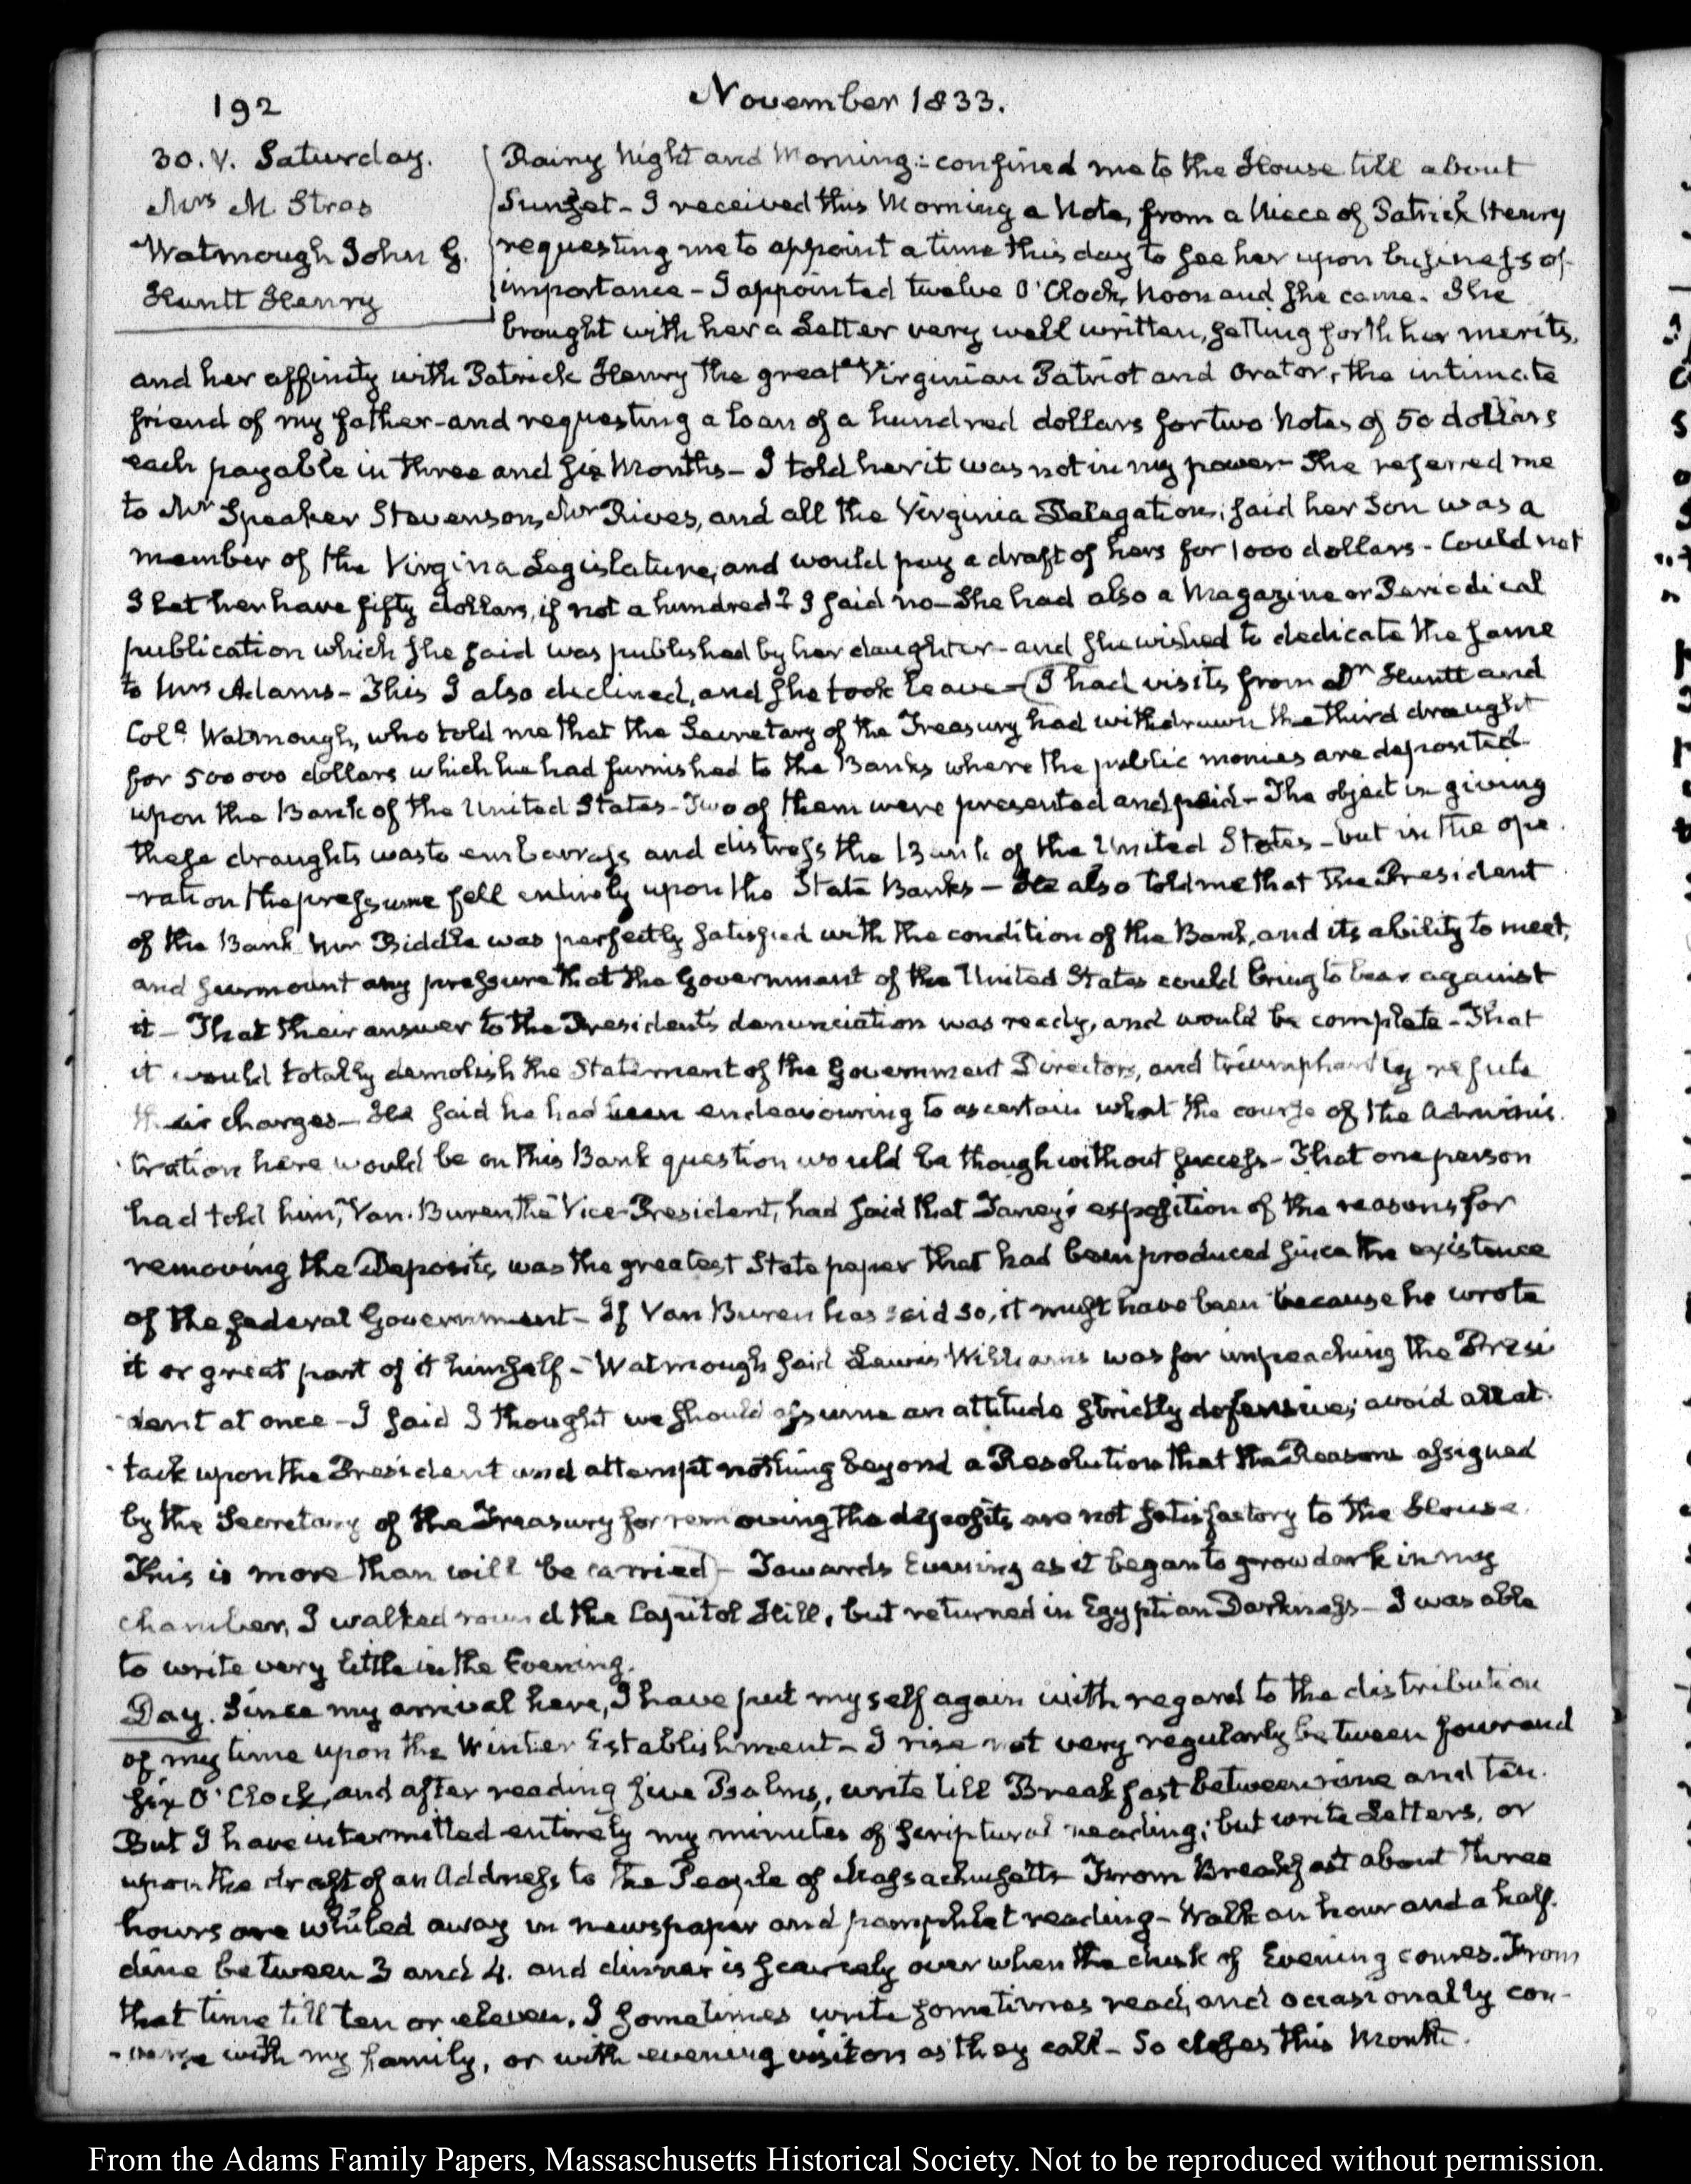 192
November 1833.
30. V. Saturday.
Mrs M Stras
Watmough John G.
Huntt Henry
Rainy Night and Morning:- confined me to the House till about
Sunset - I received this Morning a Note, from a Niece of Patrick Henry
requesting me to appoint a time this day to see her upon business of
importance - I appointed twelve O'Clock, Noon and she came. She
brought with her a Letter very well written, setting forth her merits,
and her affinity with Patrick Henry the great Virginian Patriot and Orator, the intimate
friend of my father - and requesting a loan of a hundred dollars for two Notes of 50 dollars
each payable in three and six Months - I told her it was not in my power - She referred me
to Mr Speaker Stevenson, Mr Rives, and all the Virginia Delegation; said her Son was a
member of the Virgina Legislature, and would pay a draft of hers for 1000 dollars - Could not
I let her have fifty dollars, if not a hundred? I said no - She had also a Magazine or Periodical
publication which she said was published by her daughter - and she wished to dedicate the same
to Mrs Adams - This I also declined, and she took leave - (I had visits from Dr Huntt and
Coll. Watmough, who told me that the Secretary of the Treasury had withdrawn the third draught
for 500 000 dollars which he had furnished to the Banks where the public monies are deposited
upon the Bank of the United States - Two of them were presented and paid - The object in giving
these draughts was to embarrass and distress the Bank of the United States - but in the ope
-ration the pressure fell entirely upon the State Banks - He also told me that the President
of the Bank Mr Biddle was perfectly satisfied with the condition of the Bank, and its ability to meet,
and surmount any pressure that the Government of the United States could bring to bear against
it - That their answer to the President's denunciation was ready, and would be complete - That
it would totally demolish the Statement of the Government Directors, and triumphantly refute
their charges - He said he had been endeavouring to ascertain what the course of the Adminis
-tration here would be on this Bank question would be though without success - That one person
had told him, Van Buren, the Vice-President, had said that Taney's exposition of the reasons for
removing the Deposits was the greatest State paper that had been produced since the existence
of the federal Government - If Van Buren has said so, it must have been because he wrote
it or great part of it himself - Watmough said Lewis Williams was for impeaching the Presi
-dent at once - I said I thought we should assume an attitude strictly defensive; avoid all at
-tack upon the President and attempt nothing beyond a Resolution that the Reasons assigned
by the Secretary of the Treasury for removing the deposits are not satisfactory to the House.
This is more than will be carried) - Towards Evening as it began to grow dark in my
chamber, I walked round the Capitol Hill, but returned in Egyptian Darkness - I was able
to write very little in the Evening.
Day. Since my arrival here, I have put myself again with regard to the distribution
of my time upon the Winter Establishment - I rise not very regularly between four and
six O'Clock, and after reading five Psalms, write till Breakfast between nine and ten.
But I have intermitted entirely my minutes of scriptural reading; but write Letters, or
upon the draft of an Address to the People of Massachusetts - From Breakfast about three
hours are whiled away in newspaper and pamphlet reading - Walk an hour and a half.
dine between 3 and 4. and dinner is scarcely over when the dusk of Evening comes. From
that time till ten or eleven, I sometimes write sometimes read, and occasionally con-
-verse with my family, or with evening visitors as they call - So closes this Month.
From the Adams Family Papers, Massaschusetts Historical Society. Not to be reproduced without permission.